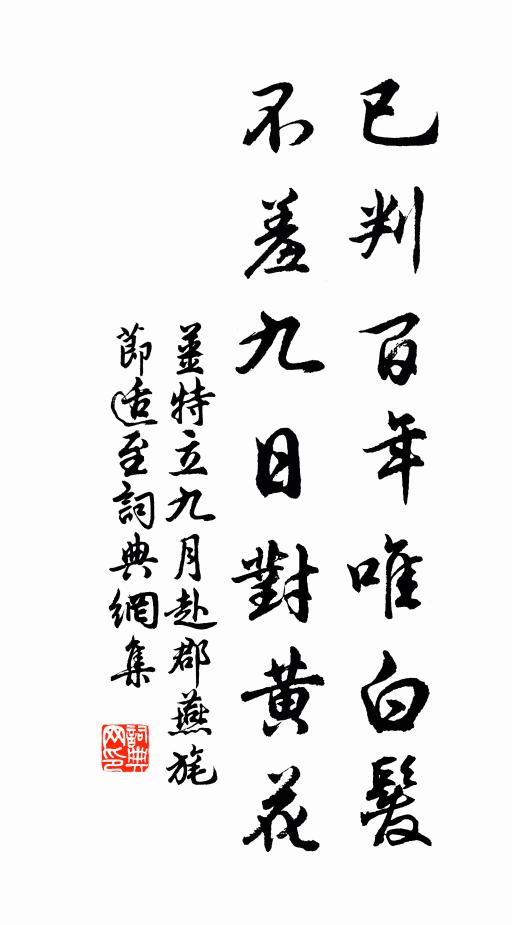 已判百年唯白髮
不羞九日對黃花
姜特立九月赴郡燕旄
節適至詞典網集
詞典
网印